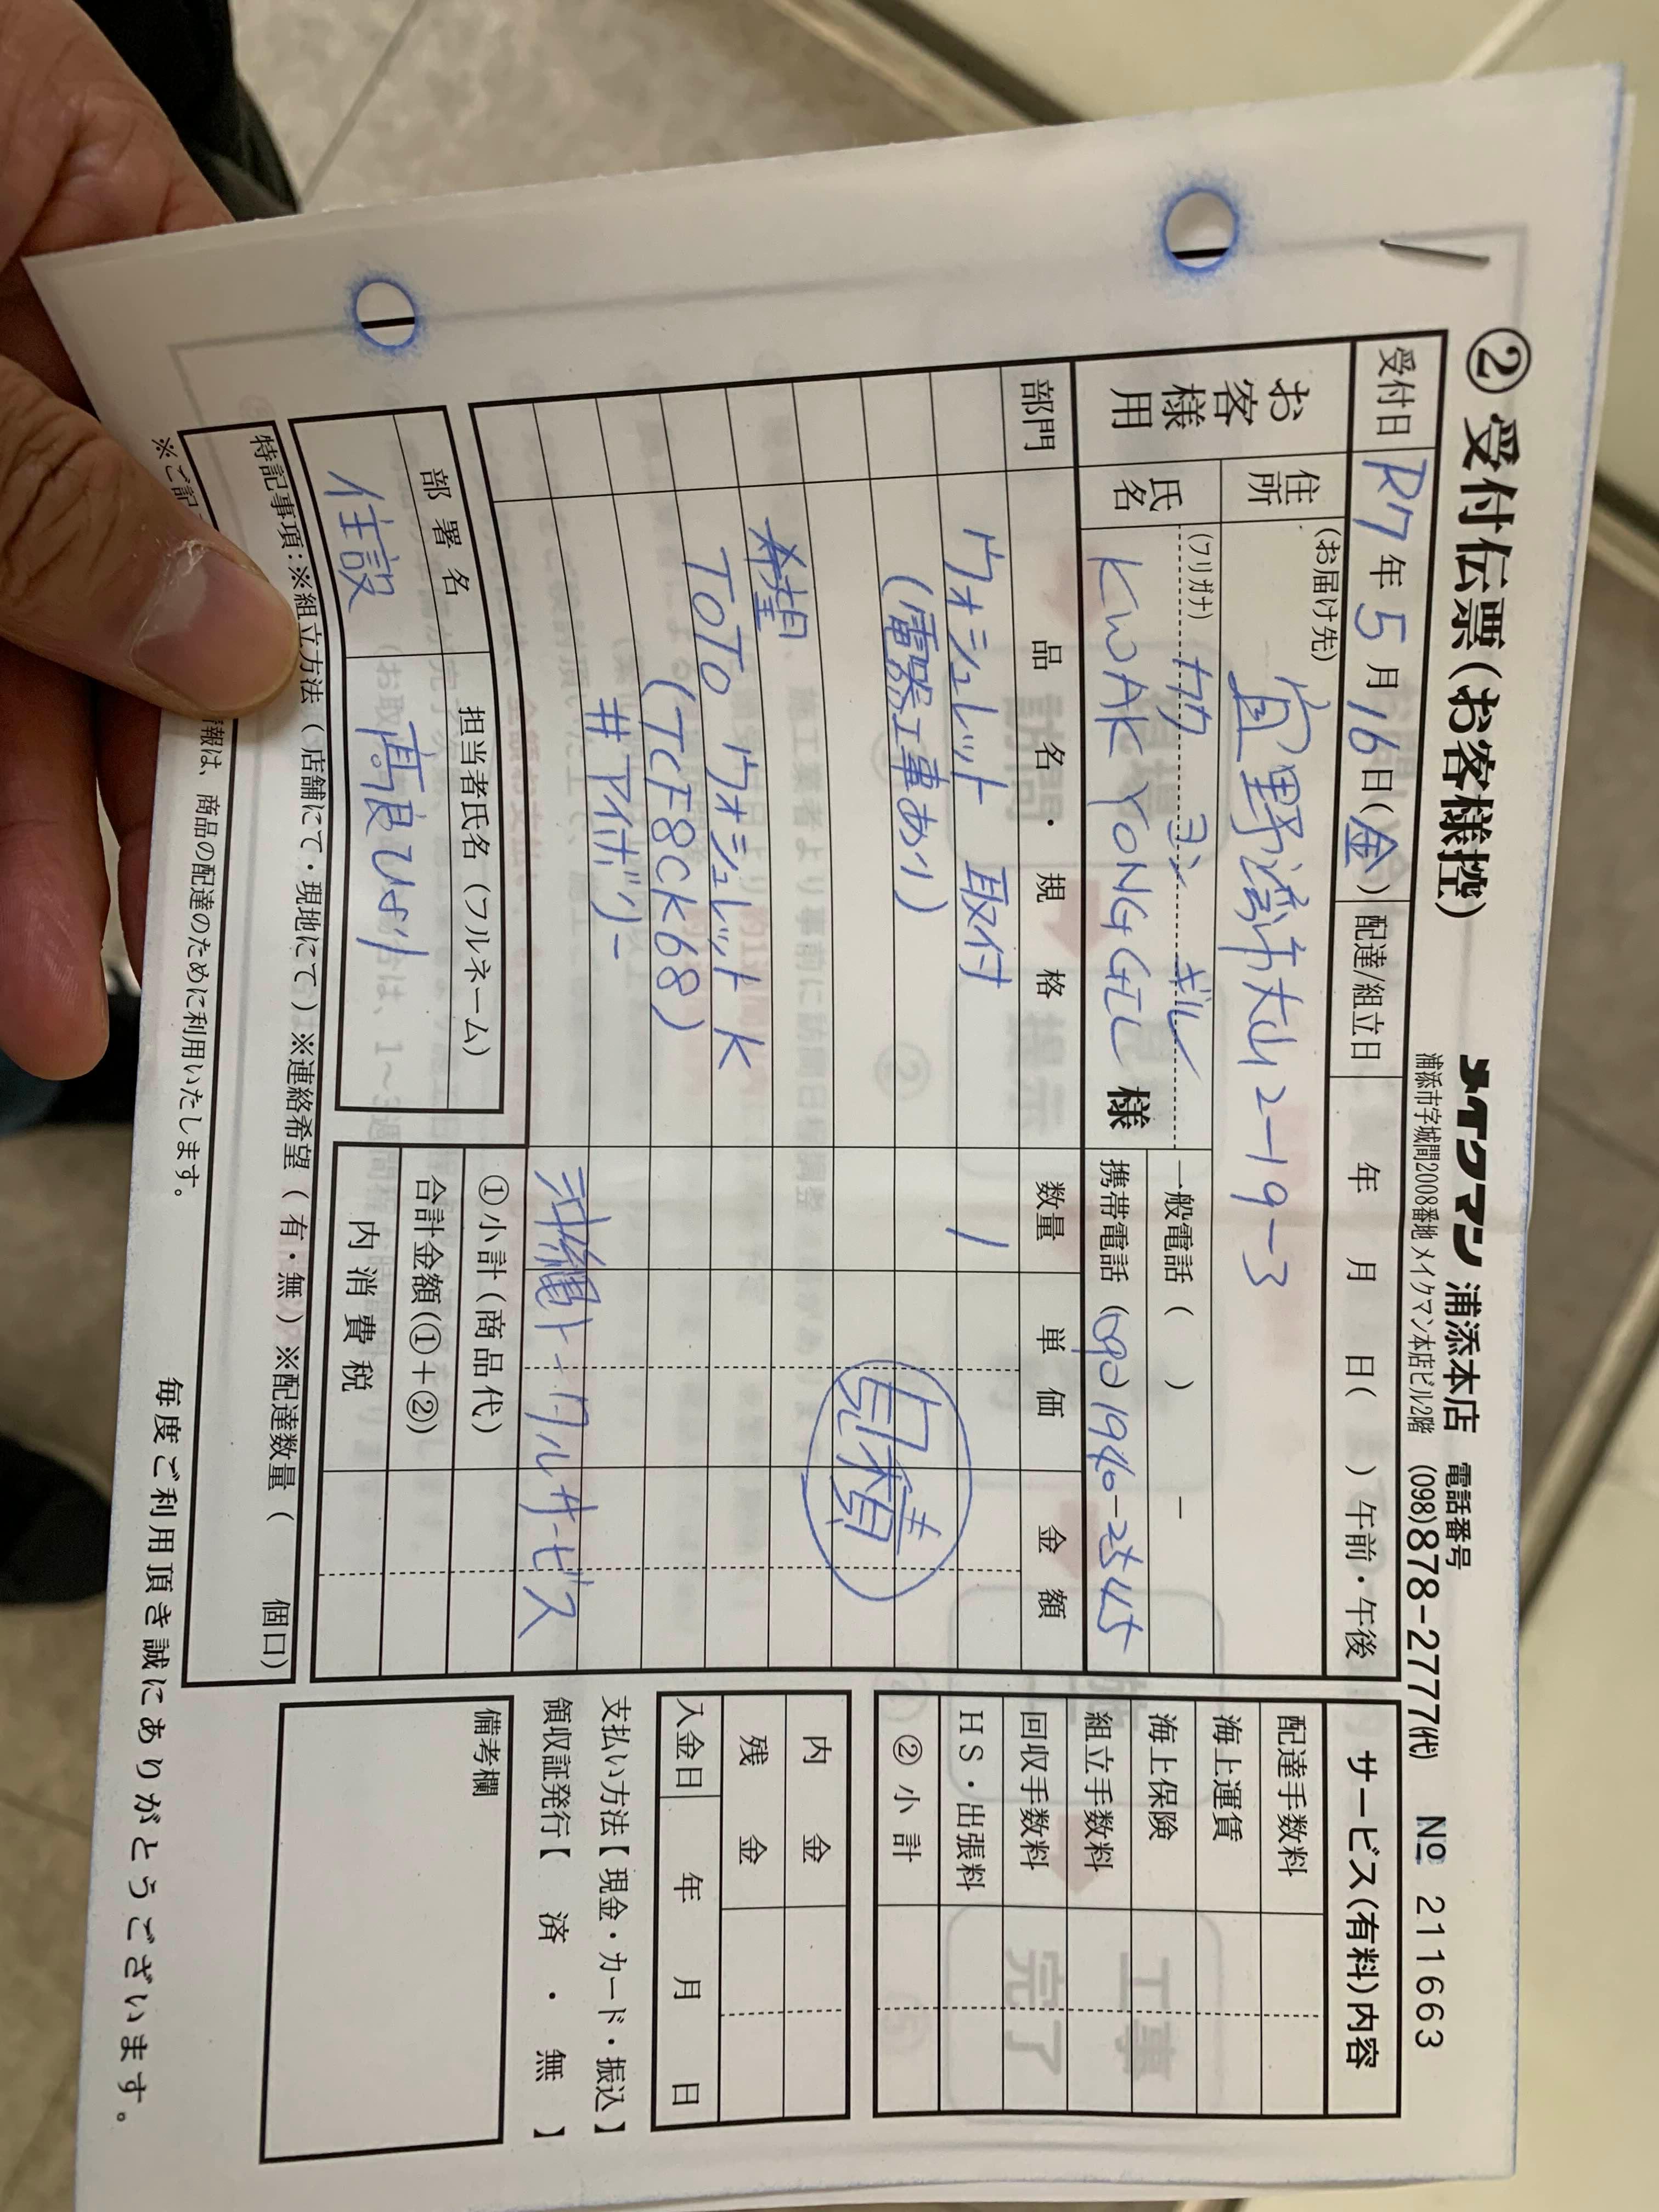 ②受付伝票(お客様控)
メイクマン 浦添本店 電話番号 (098)878-2777(代)
浦添市字城間2008番地 メイクマン本店ビル2階
№ 211663
受付日 R7年5月16日(金) 配達/組立日 年 月 日( ) 午前・午後
お客様用
住所 (お届け先) 宜野湾市大山2-19-3
氏名 (フリガナ) カク ヨン ギル
KWAK YONG GIL 様
一般電話 ( ) -
携帯電話 (090)1940-2545
部門 品名・規格 数量 単価 金額
ウォシュレット 取付 1
(電器工事あり)
見積
希望
TOTO ウォシュレット K
(TCF8CK68)
#アイボリー
沖縄トータルサービス
部署名 担当者氏名(フルネーム)
住設 髙良
①小計(商品代)
合計金額(①+②)
内消費税
特記事項:※組立方法(店舗にて・現地にて)※連絡希望(有・無)※配達数量( 個口)
※ご記
報は、商品の配達のために利用いたします。
毎度ご利用頂き誠にありがとうございます。
サービス(有料)内容
配達手数料
海上運賃
海上保険
組立手数料
回収手数料
HS・出張料
②小計
内金
残金
入金日 年 月 日
支払い方法【現金・カード・振込】
領収証発行【 済 ・ 無 】
備考欄